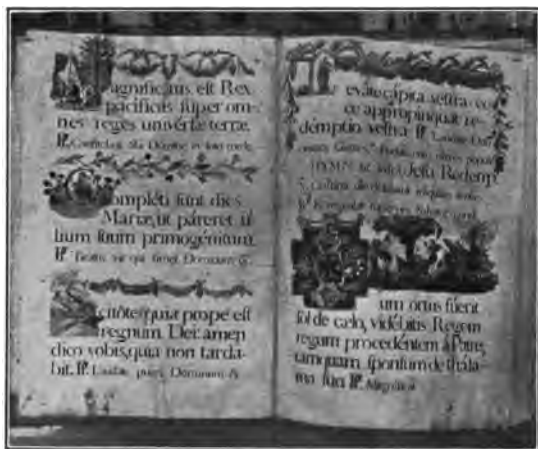 agnificatus est Rex
pacificus super om-
nes reges univérsæ terræ.
ompléti sunt dies
Mariæ, ut páreret fi
lium suum primogénitum.
℟. Beatus vir qui timet Dominum &c.
citôte quia prope est
regnum Dei: amen
dico vobis, quia non tarda-
bit. ℟. Laudate pueri Dominum &c
eváte cápita vestra: ec
ce appropinquat re-
démptio vestra ℟. Laudate
HYMN. Jesu Redemp.
um ortus fúerit
sol de cælo, vidébitis Regem
regum procedéntem à Patre,
tamquam sponsum de thála-
mo suo ℟. Magnificat